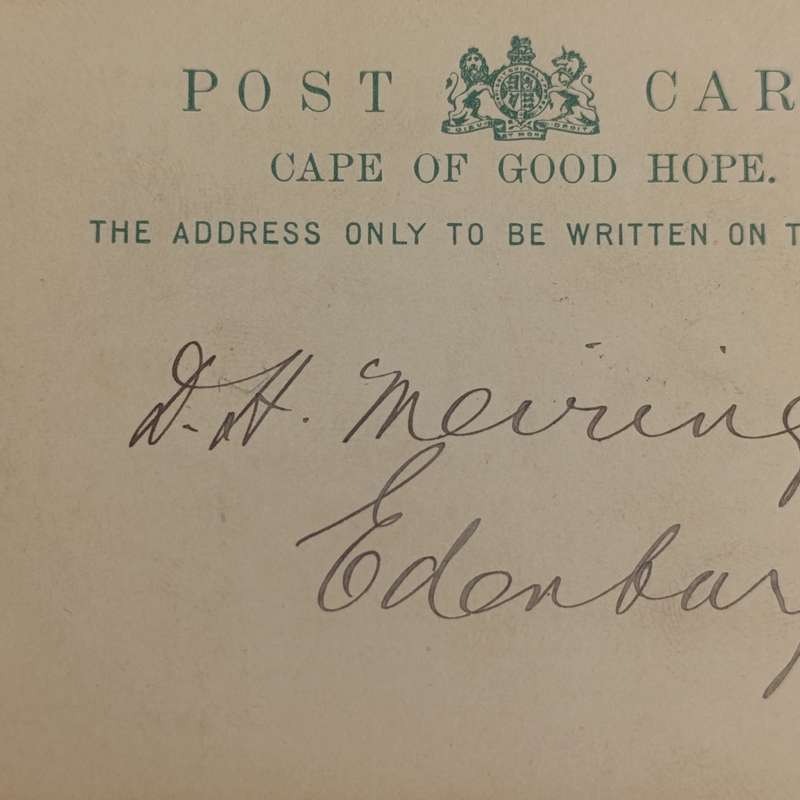 POST CAR
DIEU ET MON DROIT
CAPE OF GOOD HOPE.
THE ADDRESS ONLY TO BE WRITTEN ON T
D. H. Meiring
Edenbur